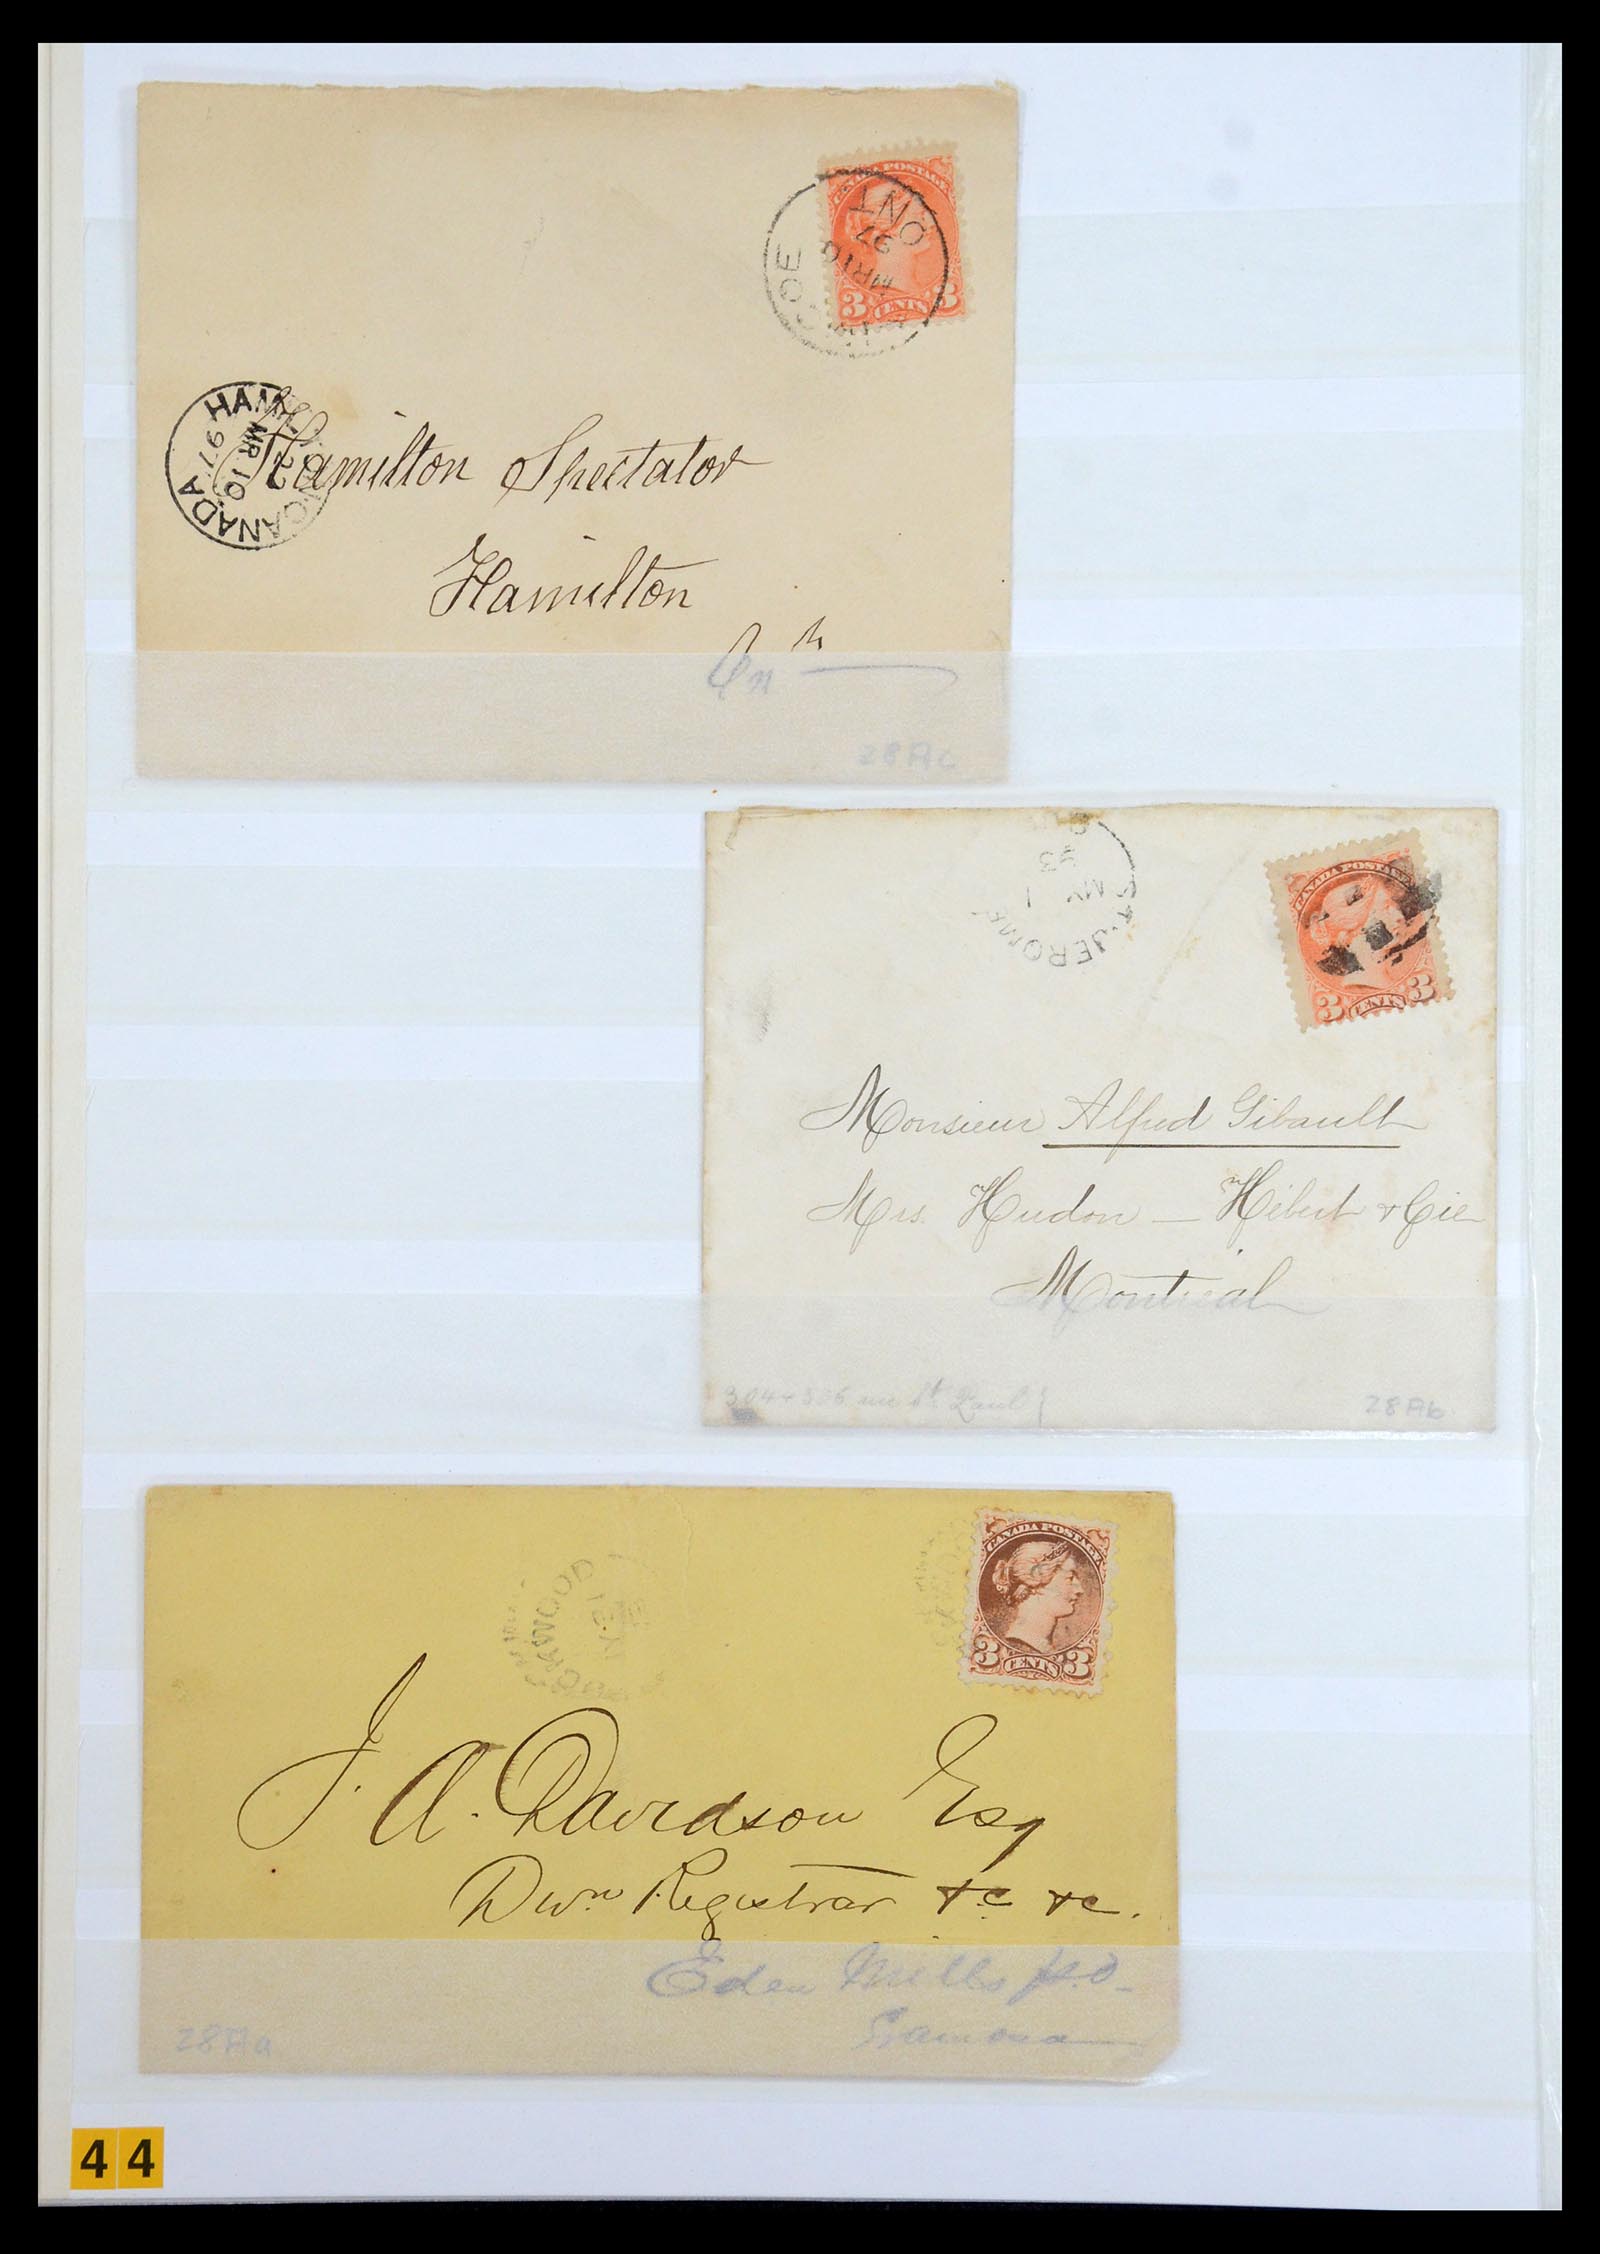 CANADA POSTAGE
3 CENTS 3
COE
ONT
MR 10
97
HAM
CANADA
MR 10
97
Hamilton Spectator
Hamilton
On
28Ac
ST JEROME
MY 1
93
CANADA POSTAGE
3 CENTS 3
Monsieur Alfred Gibault
Mrs. Hudon — Hébert & Cie
Montreal
304 + 306 rue St Paul
28Ab
CANADA POSTAGE
3 CENTS 3
CKWOOD
J. A. Davidson Esq
Divn Registrar &c &c.
Eden Mills P.O.
Eramosa
28Aa
44